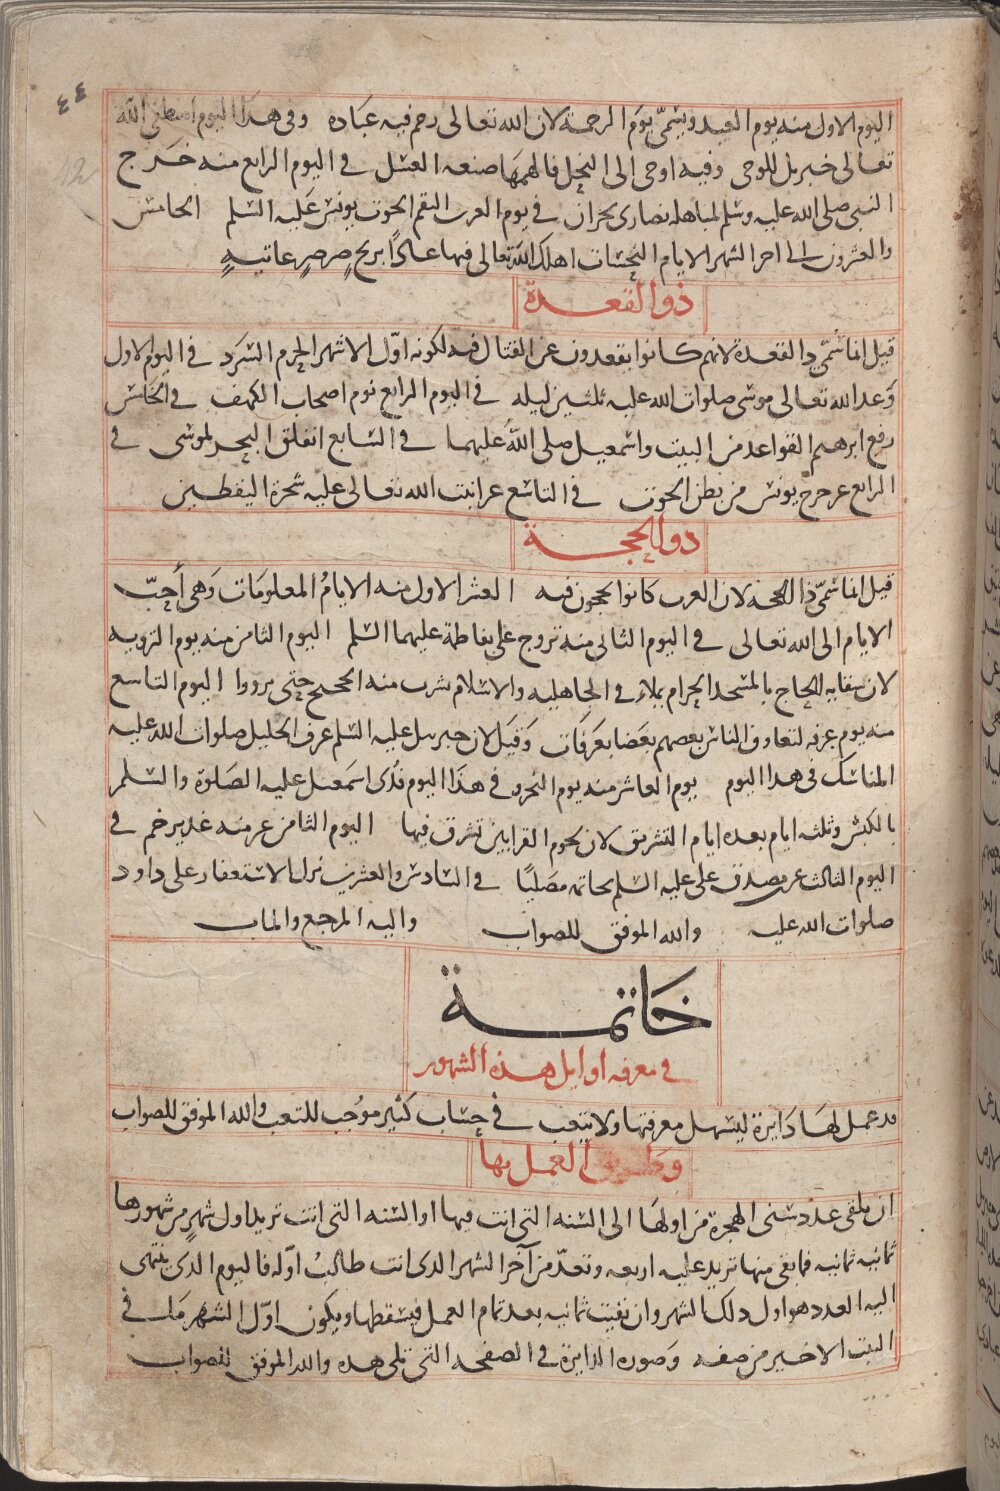 ٤٤
اليوم الاول منه يوم العيد ويسمّى يوم الرحمة لان الله تعالى رحم فيه عباده وفى هذا اليوم اصطفى الله
تعالى جبريل للوحى وفيه اوحى الى النحل فالهمها صنعه العسل فى اليوم الرابع منه خرج
النبى صلى الله عليه وسلم لمباهله نصارى نجران فى يوم العرب التقم الحوت يونس عليه السلم الخامس
والعشرون الى اخر الشهر الايام النحسات اهلك الله تعالى فيها عادًا بريح صرصر عاتيةٍ
ذو القعدة
قيل انما سمّى ذا القعدة لانهم كانوا يقعدون عن القتال فيه لكونه اوّل الاشهر الحرم السرد فى اليوم الاول
وعد الله تعالى موسى صلوات الله عليه ثلثين ليله فى اليوم الرابع نوم اصحاب الكهف فى الخامس
رفع ابرهيم القواعد من البيت واسمعيل صلى الله عليهما فى السابع انفلق البحر لموسى فى
الرابع عر خرج يونس من بطن الحوت فى التاسع عر انبت الله تعالى عليه شجرة اليقطين
ذو الحجة
قيل انما سمّى ذا الحجه لان العرب كانوا يحجون فيه العشر الاول منه الايام المعلومات وهى أحبّ
الايام الى الله تعالى فى اليوم الثانى منه تزوج على بفاطمة عليهما السلم اليوم الثامن منه يوم التروية
لان سقايه الحاج بالمسجد الحرام يملاء فى الجاهليه والاسلام شرب منه الحجيج حتى يرووا اليوم التاسع
منه يوم عرفه لتعارف الناس بعضهم بعضا بعرفات وقيل لان جبريل عليه السلم عرف الخليل صلوات الله عليه
المناسك فى هذا اليوم يوم العاشر منه يوم النحر وفى هذا اليوم فدى اسمعيل عليه الصلوة والسلم
بالكبش وثلثه ايام بعده ايام التشريق لان لحوم القرابين تشرق فيها اليوم الثامن عر منه غدير خم فى
اليوم الثالث عر تصدق على عليه السلم بخاتمه مصليًا فى السادس والعشرين نزل الاستغفار على داود
صلوات الله عليه والله الموفق للصواب واليه المرجع والماب
خاتمة
فى معرفه اوايل هذه الشهور
قد عمل لها دايرة ليسهل معرفتها ولا يتعب فى حساب كثير موجب للتعب والله الموفق للصواب
وطريق العمل بها
ان يلقى عدد سنى الهجرة من اولها الى السنه التى انت فيها او السنه التى انت تريد اول شهر من شهورها
ثمانيه ثمانيه فما بقى منها تزيد عليه اربعه وتعدّ من آخر الشهر الذى انت طالبُ اوّله فاليوم الذى ينتهى
اليه العدد هو اول ذلك الشهر وان بقيت ثمانيه بعد تمام العمل فيسقطها ويكون اوّل الشهر فى
البيت الاخير من صفه وصوره الدايرة فى الصفحه التى تلى هذه والله الموفق للصواب